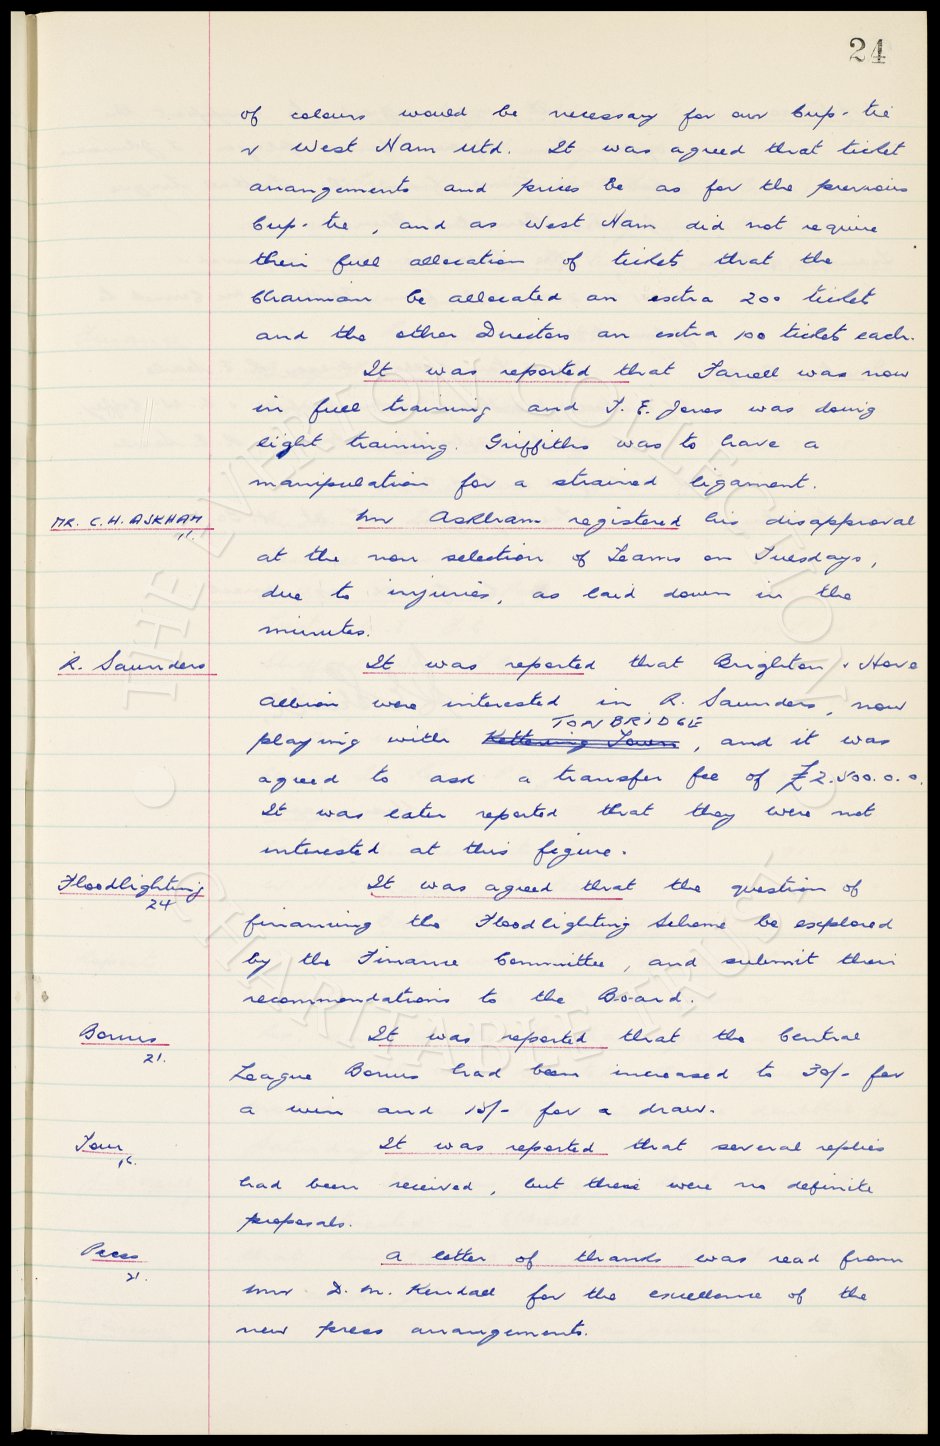 24
of colours would be necessary for our Cup-tie
v West Ham Utd. It was agreed that ticket
arrangements and prices be as for the previous
Cup-tie, and as West Ham did not require
their full allocation of tickets that the
Chairman be allocated an extra 200 ticket
and the other Directors an extra 100 ticket each.
It was reported that Farrell was now
in full training and T. E. Jones was doing
light training. Griffiths was to have a
manipulation for a strained ligament.
MR. C. H. ASKHAM
Mr Askham registered his disapproval
at the non selection of Teams on Tuesdays,
due to injuries, as laid down in the
minutes.
R. Saunders
It was reported that Brighton & Hove
Albion were interested in R. Saunders, now
TONBRIDGE
playing with Kettering Town, and it was
agreed to ask a transfer fee of £2.500.0.0.
It was later reported that they were not
interested at this figure.
Floodlighting
24
It was agreed that the question of
financing the Floodlighting Scheme be explored
by the Finance Committee, and submit their
recommendations to the Board.
Bonus
21.
It was reported that the Central
League Bonus had been increased to 30/- for
a win and 15/- for a draw.
Tour
16.
It was reported that several replies
had been received, but there were no definite
proposals.
Press
21.
A letter of thanks was read from
D. M. Kendall for the excellence of the
new press arrangements.
THE EVERTON COLLECTION
CHARITABLE TRUST